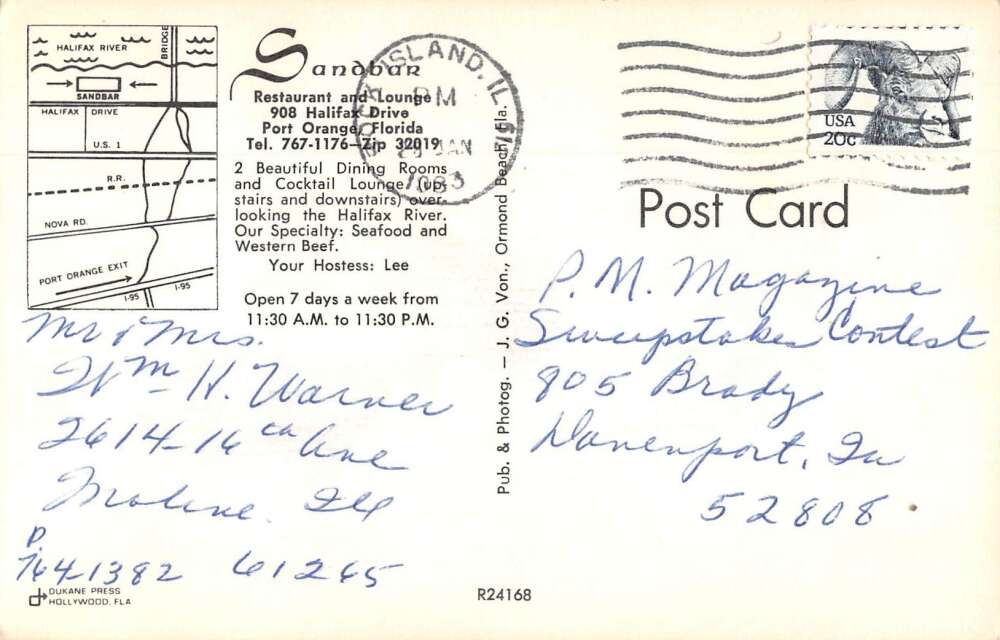 HALIFAX RIVER
BRIDGE
SANDBAR
HALIFAX DRIVE
U.S. 1
R.R.
NOVA RD.
PORT ORANGE EXIT
I-95
I-95
Sandbar
Restaurant and Lounge
908 Halifax Drive
Port Orange, Florida
Tel. 767-1176—Zip 32019
2 Beautiful Dining Rooms
and Cocktail Lounge (up-
stairs and downstairs) over-
looking the Halifax River.
Our Specialty: Seafood and
Western Beef.
Your Hostess: Lee
Open 7 days a week from
11:30 A.M. to 11:30 P.M.
Mr & Mrs.
Wm H. Warner
2614-16th Ave
Moline. Ill
P.
764-1382 61265
DUKANE PRESS
HOLLYWOOD, FLA
Pub. & Photog. — J. G. Von., Ormond Beach, Fla.
ISLAND, IL
PM
JAN
1983
USA
20c
Post Card
P.M. Magazine
Sweepstakes Contest
805 Brady
Davenport, Ia
52808
R24168